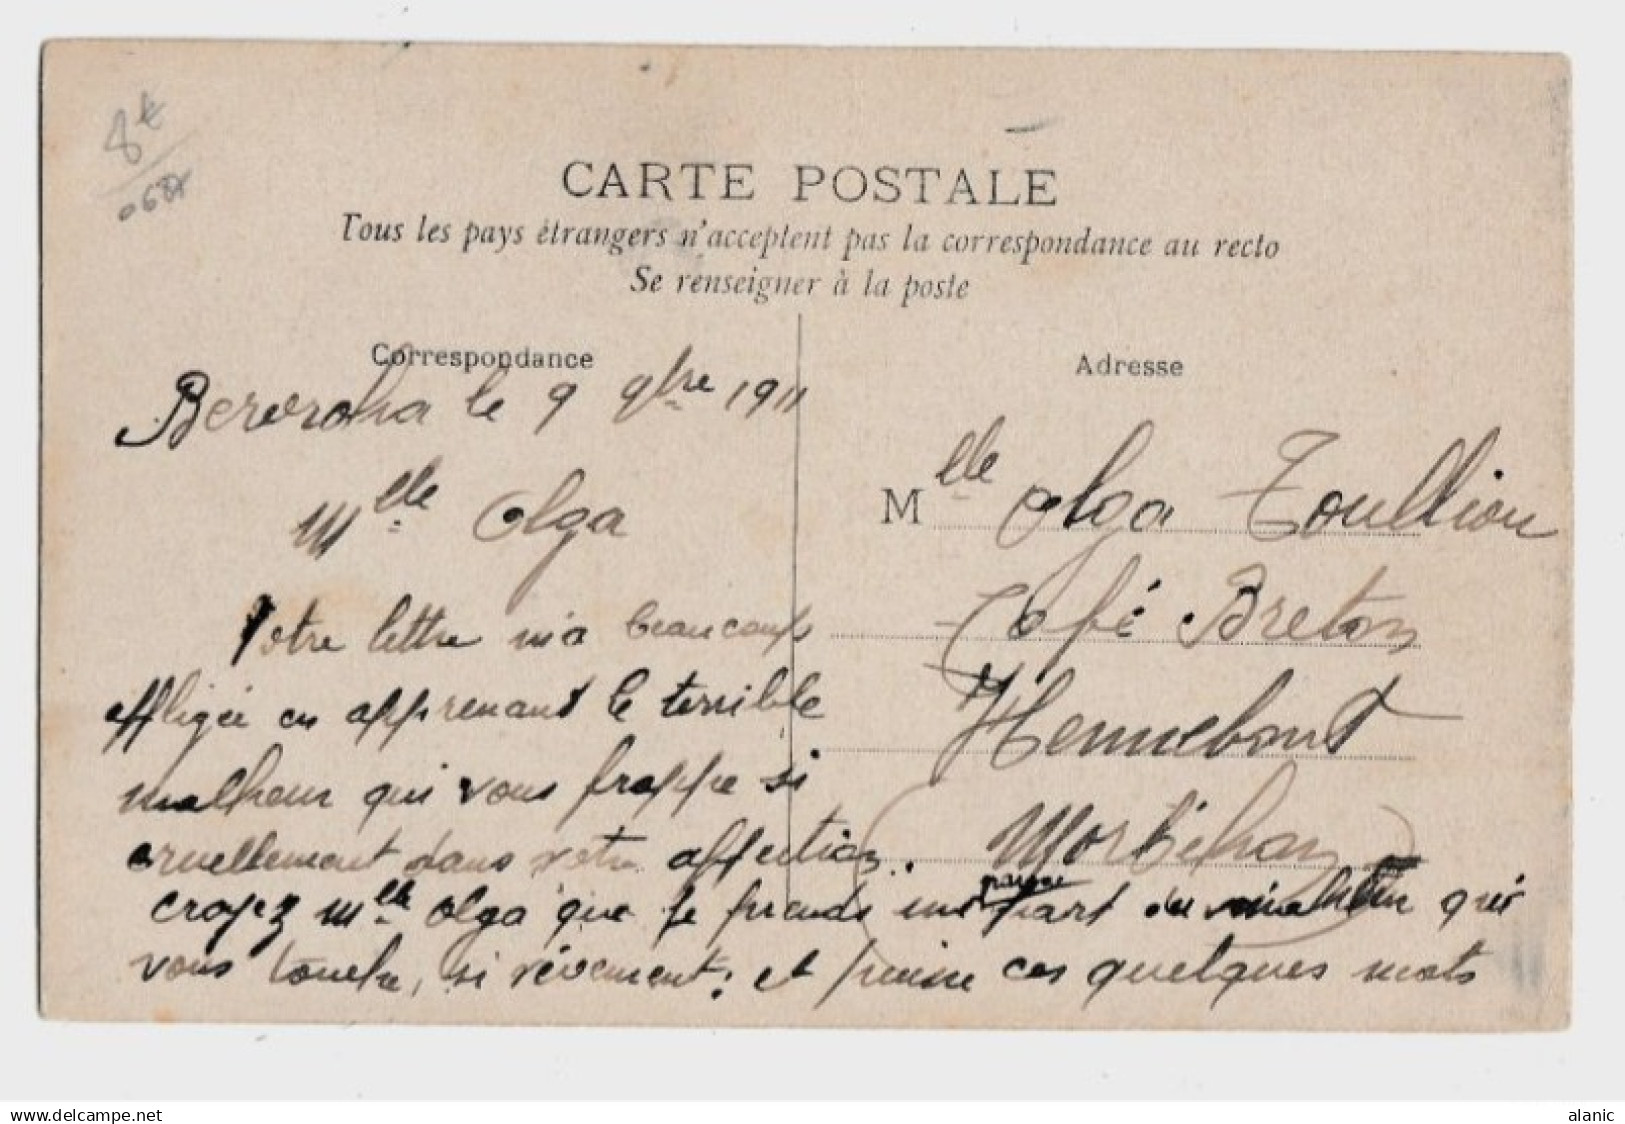 8€
CARTE POSTALE
Tous les pays étrangers n'acceptent pas la correspondance au recto
Se renseigner à la poste
Correspondance
Beroroha le 9 9bre 1911
Mlle Olga
Votre lettre m'a beaucoups
affligée en apprenant le terrible
malheur qui vous frappe si
cruellement dans votre affection.
croyez Mlle Olga que je prends une part du malheur qui
vous touche, si
et puisse ces quelques mots
Adresse
Mlle Olga Toullion
Café Breton
Hennebont
Morbihan
www.delcampe.net
alanic